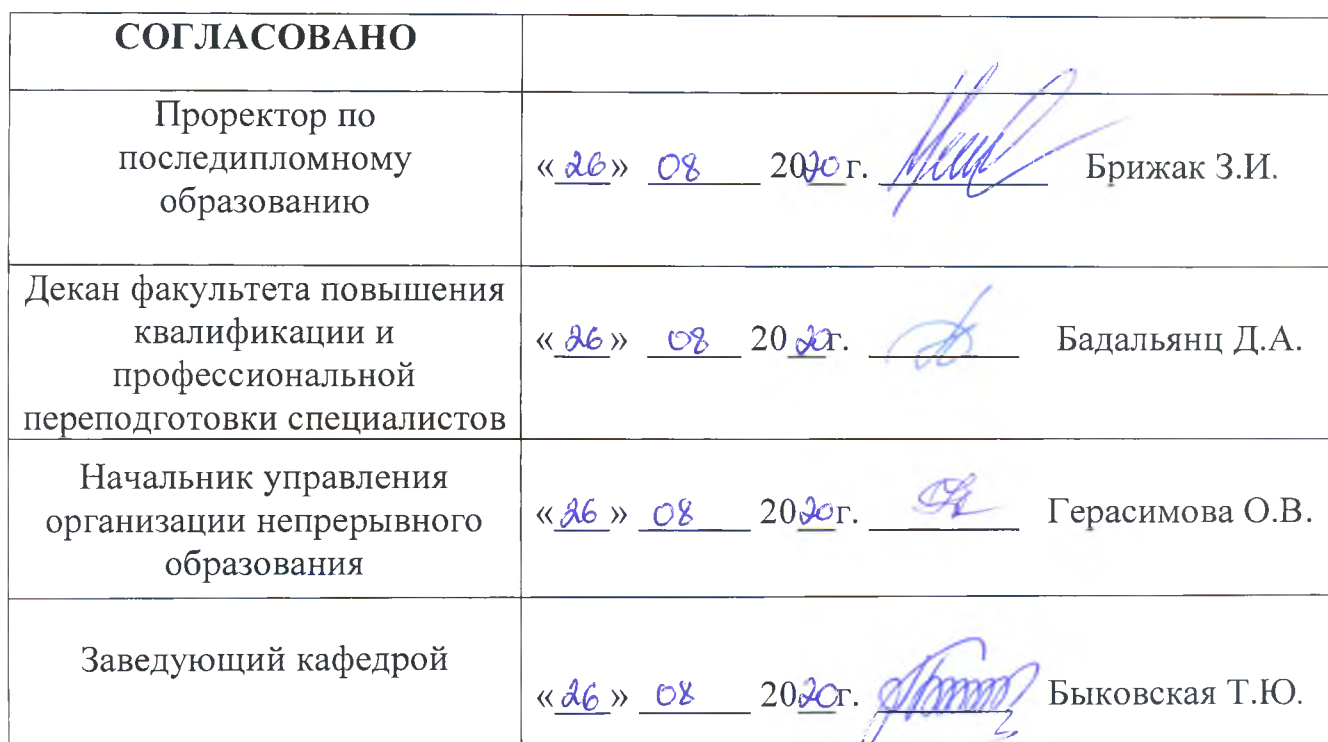 СОГЛАСОВАНО
Проректор по
последипломному
образованию
«26» 08 2020 г. Брижак З.И.
Декан факультета повышения
квалификации и
профессиональной
переподготовки специалистов
«26» 08 2020г. Бадальянц Д.А.
Начальник управления
организации непрерывного
образования
«26» 08 2020г. Герасимова О.В.
Заведующий кафедрой
«26» 08 2020г. Быковская Т.Ю.